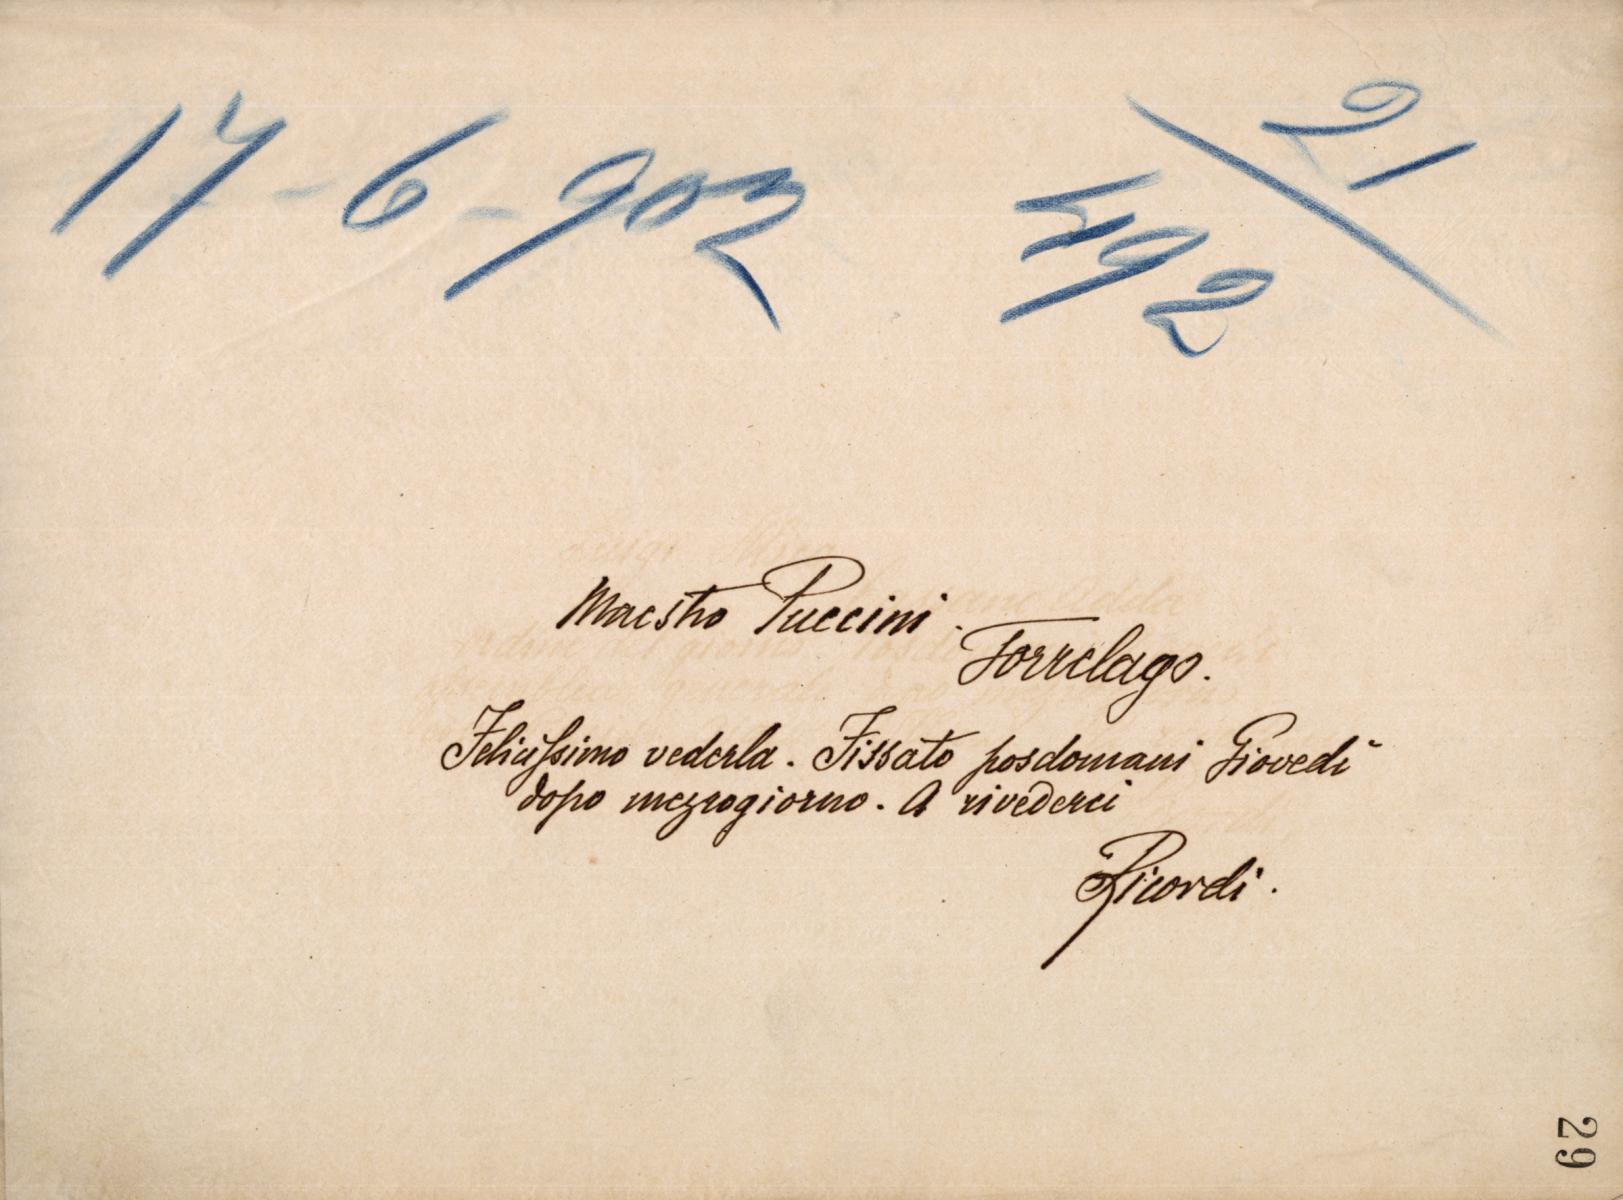 17-6-902
21
492
Maestro Puccini.
Torrelago.
Felicissimo vederla. Fissato posdomani Giovedì
dopo mezzogiorno. A rivederci
Ricordi.
29